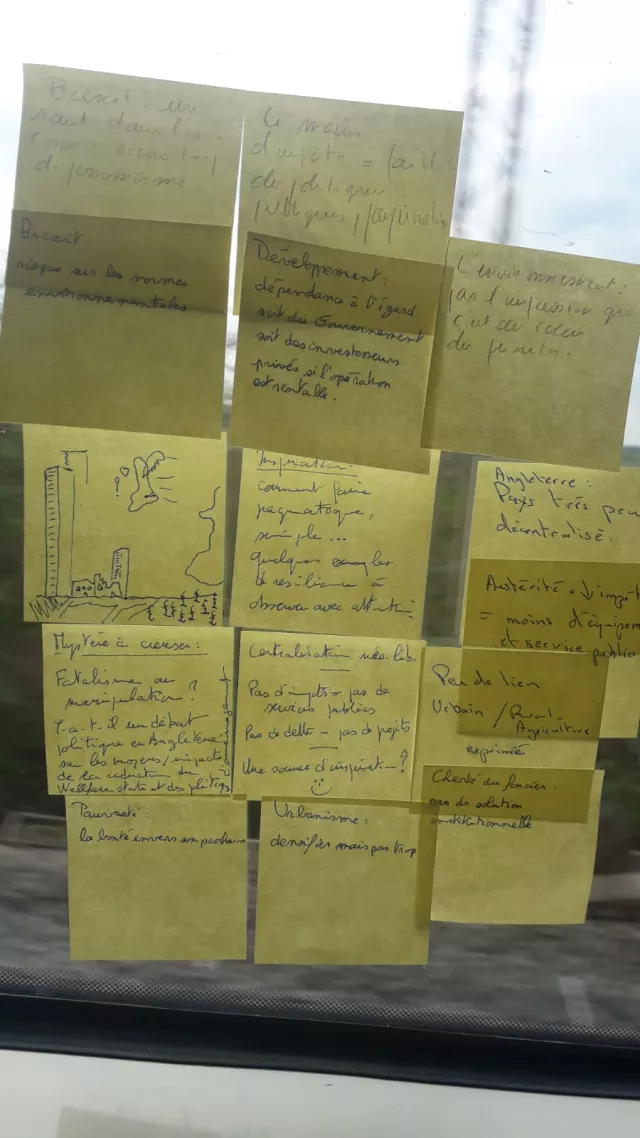 Brexit : un
saut dans l'in
connu sans trop
de pessimisme
Ce moins
d'impôts =
de politiques
publiques,
Brexit :
risque sur les normes
environnementales
Développement :
dépendance à l'égard
soit du Gouvernement
soit des investisseurs
privés si l'opération
est rentable.
L'environnement :
pas l'impression que
c'est de coeur
du
Inspiration :
comment faire
pragmatique,
simple...
quelques exemples
de résilience à
observer avec attention
Angleterre :
Pays très peu
décentralisé.
Austérité + ↓ impôt
= moins d'équipem
et service public
Mystère à creuser :
Fatalisme ou
manipulation ?
Y-a-t-il un débat
politique en Angleterre
sur les moyens/impacts
de la réduction du
Welfare state et des
Centralisation néo-lib.
Pas d'impôts = pas de
services publics
Pas de dette = pas de projets
Une source d'inspirat° ?
Peu de lien
Urbain / Rural-
Agriculture
exprimée
Cherté du foncier :
pas de solution
institutionnelle
Pauvreté :
la bonté envers son prochain
Urbanisme :
densifier mais pas trop